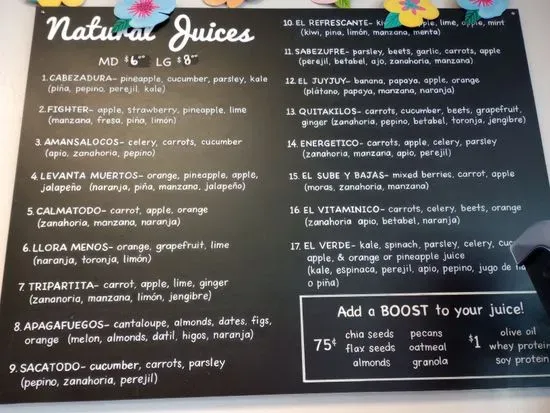 Natural Juices
MD $6 LG $8
1. CABEZADURA- pineapple, cucumber, parsley, kale
(piña, pepino, perejil, kale)
2. FIGHTER- apple, strawberry, pineapple, lime
(manzana, fresa, piña, limón)
3. AMANSALOCOS- celery, carrots, cucumber
(apio, zanahoria, pepino)
4. LEVANTA MUERTOS- orange, pineapple, apple,
jalapeño (naranja, piña, manzana, jalapeño)
5. CALMATODO- carrot, apple, orange
(zanahoria, manzana, naranja)
6. LLORA MENOS- orange, grapefruit, lime
(naranja, toronja, limón)
7. TRIPARTITA- carrot, apple, lime, ginger
(zananoria, manzana, limón, jengibre)
8. APAGAFUEGOS- cantaloupe, almonds, dates, figs,
orange (melon, almonds, datil, higos, naranja)
9. SACATODO- cucumber, carrots, parsley
(pepino, zanahoria, perejil)
10. EL REFRESCANTE- apple, lime, mint
(kiwi, pina, limón, manzana, menta)
11. SABEZUFRE- parsley, beets, garlic, carrots, apple
(perejil, betabel, ajo, zanahoria, manzana)
12. EL JUYJUY- banana, papaya, apple, orange
(plátano, papaya, manzana, naranja)
13. QUITAKILOS- carrots, cucumber, beets, grapefruit,
ginger (zanahoria, pepino, betabel, toronja, jengibre)
14. ENERGETICO- carrots, apple, celery, parsley
(zanahoria, manzana, apio, perejil)
15. EL SUBE Y BAJAS- mixed berries, carrot, apple
(moras, zanahoria, manzana)
16. EL VITAMINICO- carrots, celery, beets, orange
(zanahoria apio, betabel, naranja)
17. EL VERDE- kale, spinach, parsley, celery,
apple, & orange or pineapple juice
(kale, espinaca, perejil, apio, pepino, jugo de
o piña)
Add a BOOST to your juice!
75¢ chia seeds pecans $1 olive oil
flax seeds oatmeal whey protein
almonds granola soy protein